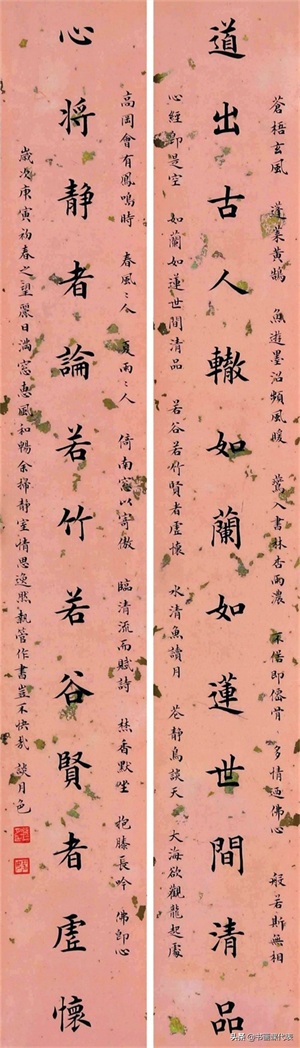 蒼梧玄風 道 黃鵠 魚遊墨沼頻風暖 鶯入書林杏雨濃 不俗即僊骨 多情迺佛心 般若斯無相
道出古人轍如蘭如蓮世間清品
心經即是空 如蘭如蓮世間清品 若谷若竹賢者虛懷 水清魚讀月 花靜鳥談天 大海欲觀龍起處
高岡會有鳳鳴時 春風〻人 夏雨〻人 倚南窓以寄傲 臨清流而賦詩 焚香默坐 抱膝長吟 佛即心
心將靜者論若竹若谷賢者虛懷
歲次庚寅初春之望麗日滿窓惠風和暢余掃靜室情思逸然執管作書豈不快哉 談月色
头条 @书画课代表